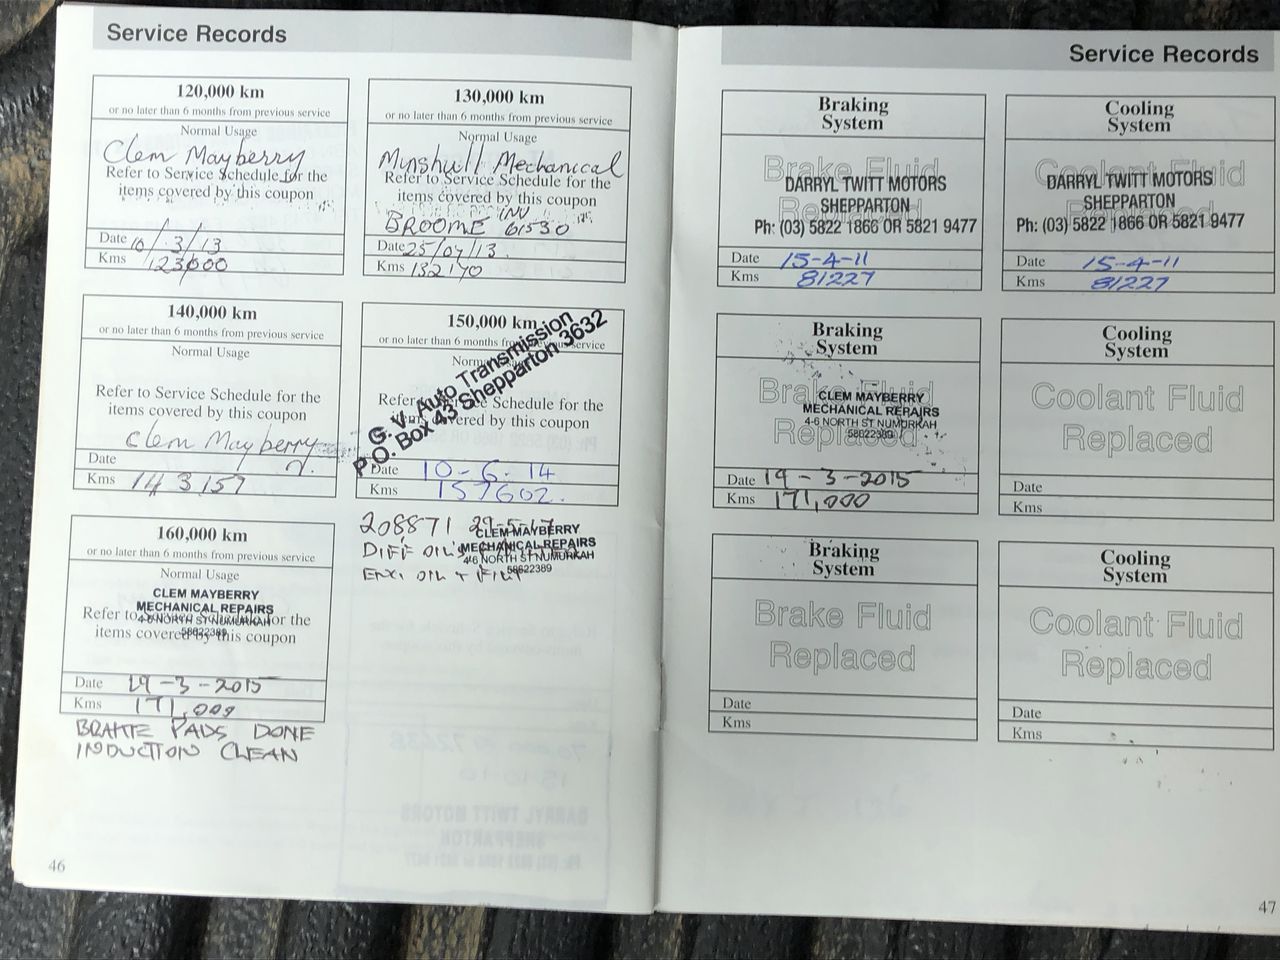 Service Records
120,000 km
or no later than 6 months from previous service
Normal Usage
Clem Mayberry
Refer to Service Schedule for the
items covered by this coupon
Date 10/3/13
Kms 123000
130,000 km
or no later than 6 months from previous service
Normal Usage
Minshull Mechanical
Refer to Service Schedule for the
items covered by this coupon
BROOME INV 61530
Date 25/07/13
Kms 132170
140,000 km
or no later than 6 months from previous service
Normal Usage
Refer to Service Schedule for the
items covered by this coupon
Clem Mayberry
Date
Kms 143157
150,000 km
or no later than 6 months from previous service
Normal Usage
Refer to Service Schedule for the
items covered by this coupon
G. V. Auto Transmission
P.O. Box 43 Shepparton 3632
Date 10-6-14
Kms 157602.
160,000 km
or no later than 6 months from previous service
Normal Usage
CLEM MAYBERRY
MECHANICAL REPAIRS
4-6 NORTH ST NUMURKAH
58622389
Refer to Service Schedule for the
items covered by this coupon
Date 19-3-2015
Kms 171,000
BRAKE PADS DONE
INDUCTION CLEAN
208871 29-5-17
DIFF OIL'S
ENG. OIL + FILT
CLEM MAYBERRY
MECHANICAL REPAIRS
4-6 NORTH ST NUMURKAH
58622389
46
Service Records
Braking
System
Brake Fluid
Replaced
DARRYL TWITT MOTORS
SHEPPARTON
Ph: (03) 5822 1866 OR 5821 9477
Date 15-4-11
Kms 81227
Cooling
System
Coolant Fluid
Replaced
DARRYL TWITT MOTORS
SHEPPARTON
Ph: (03) 5822 1866 OR 5821 9477
Date 15-4-11
Kms 81227
Braking
System
Brake Fluid
Replaced
CLEM MAYBERRY
MECHANICAL REPAIRS
4-6 NORTH ST NUMURKAH
58622389
Date 19-3-2015
Kms 171,000
Cooling
System
Coolant Fluid
Replaced
Date
Kms
Braking
System
Brake Fluid
Replaced
Date
Kms
Cooling
System
Coolant Fluid
Replaced
Date
Kms
47